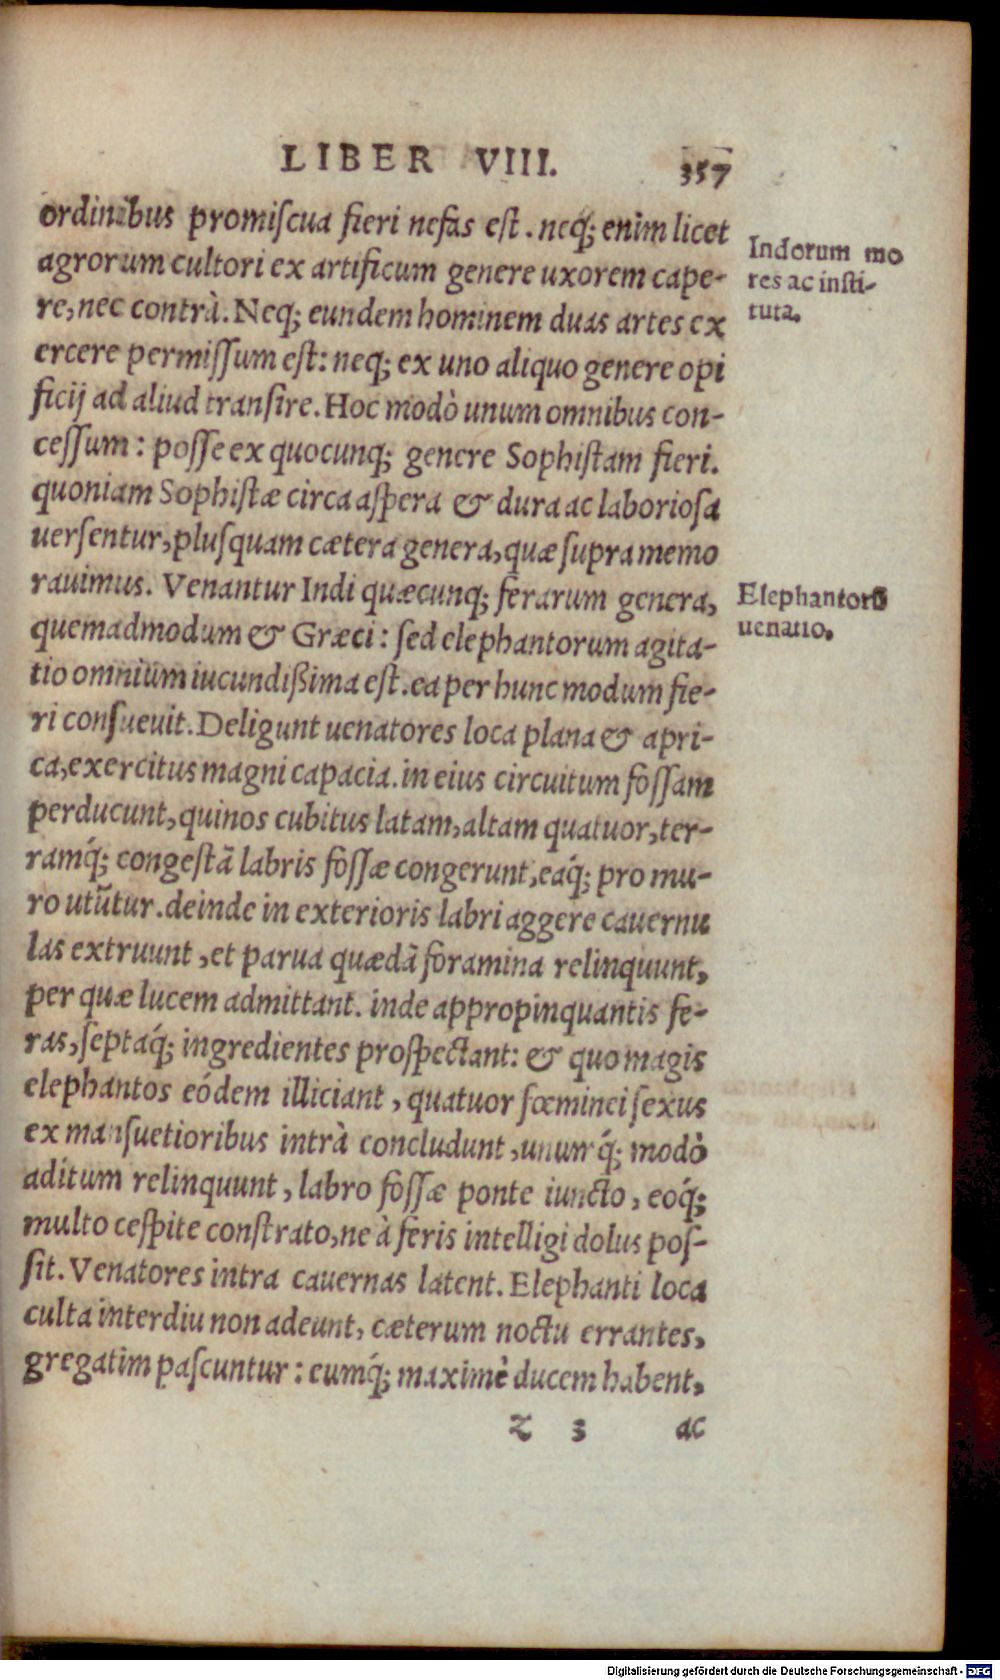 LIBER VIII. 357
ordinibus promiſcua fieri nefas eſt. neq́; enim licet
agrorum cultori ex artificum genere uxorem cape-
re, nec contrà. Neq; eundem hominem duas artes ex
ercere permiſſum est: neq; ex uno aliquo genere opi
ficij ad aliud tranſire. Hoc modò unum omnibus con-
ceſſum: poſſe ex quocunq; genere Sophiſtam fieri.
quoniam Sophiſtæ circa aſpera & dura ac laborioſa
uerſentur, pluſquam cætera genera, quæ ſupra memo
rauimus. Venantur Indi quæcunq; ferarum genera,
quemadmodum & Græci: ſed elephantorum agita-
tio omnium iucundißima eſt. ea per hunc modum fie-
ri conſueuit. Deligunt uenatores loca plana & apri-
ca, exercitus magni capacia. in eius circuitum foſſam
perducunt, quinos cubitus latam, altam quatuor, ter-
ramq́; congeſtã labris foſſæ congerunt, eaq́; pro mu-
ro utũtur. deinde in exterioris labri aggere cauernu
las extruunt, et parua quædã foramina relinquunt,
per quæ lucem admittant. inde appropinquantis fe-
ras, ſeptaq́; ingredientes proſpectant: & quo magis
elephantos eódem illiciant, quatuor fœminei ſexus
ex manſuetioribus intrà concludunt, unumq́; modò
aditum relinquunt, labro foſſæ ponte iuncto, eoq́;
multo ceſpite conſtrato, ne à feris intelligi dolus poſ-
ſit. Venatores intra cauernas latent. Elephanti loca
culta interdiu non adeunt, cæterum noctu errantes,
gregatim paſcuntur: eumq́; maximè ducem habent,
z 3 ac
Indorum mo
res ac inſti-
tuta.
Elephantorũ
uenatio.
Digitalisierung gefördert durch die Deutsche Forschungsgemeinschaft - DFG